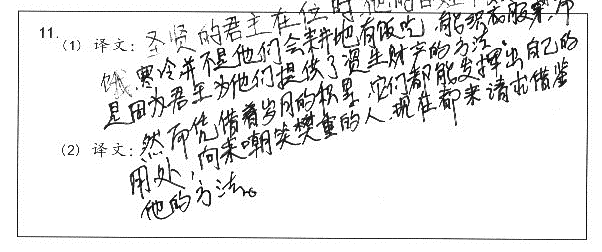 11.
(1) 译文：圣贤的君主在位时他的百姓不
饿寒冷并不是他们会耕地有饭吃，能织衣服来，而
是因为君主为他们提供了资生财产的方法
(2) 译文：然而凭借着岁月的积累，它们都能发挥出自己的
用处，向来嘲笑樊重的人，现在都来请求借鉴
他的方法。